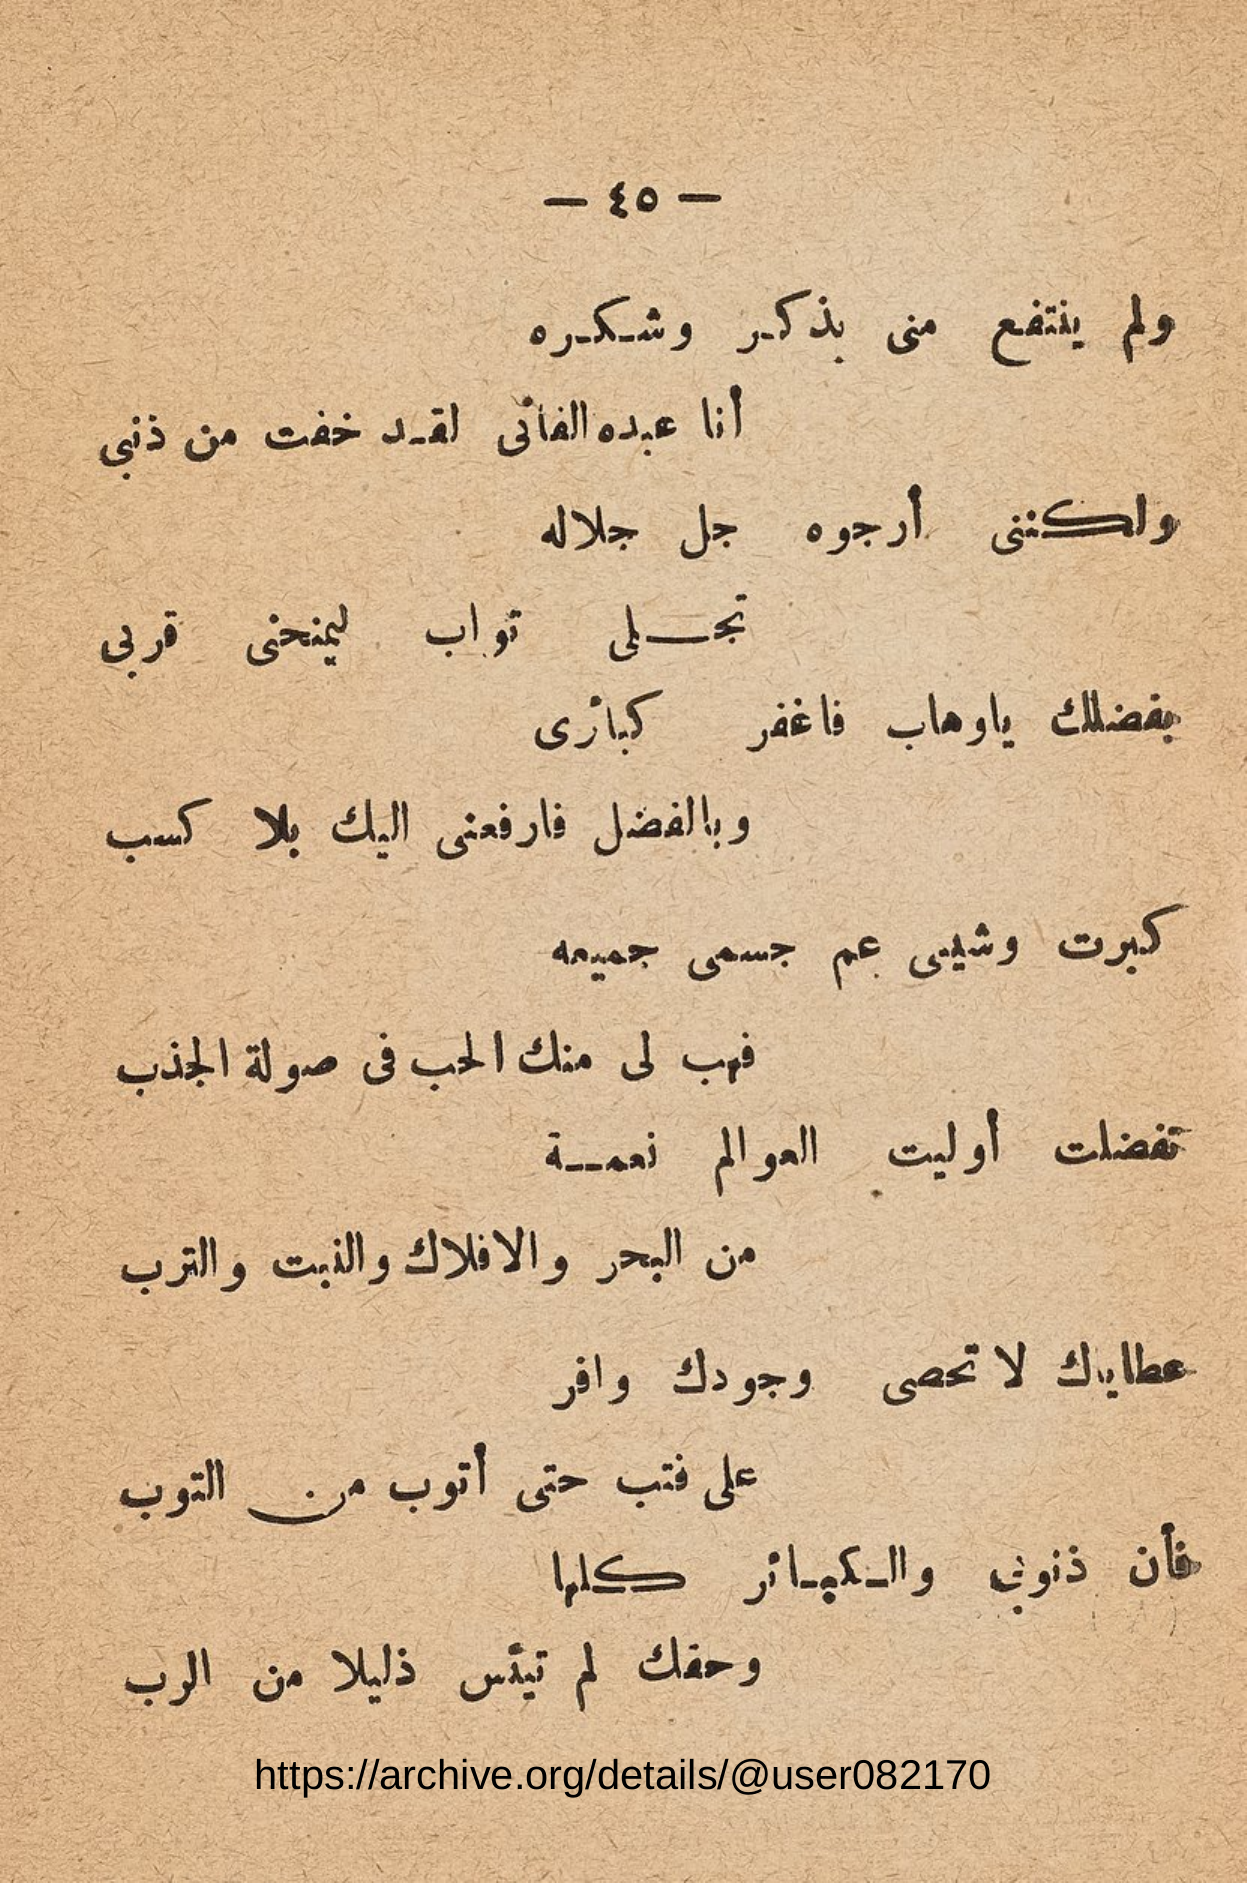 — ٤٥ —
ولم ينتفع منى بذكر وشكره
أنا عبده الفانى لقد خفت من ذنبى
ولكننى أرجوه جل جلاله
تجلى تواب ليمنحنى قربى
بفضلك ياوهاب فاغفر كبائرى
وبالفضل فارفعنى اليك بلا كسب
كبرت وشيبى عم جسمى جميعه
فهب لى منك الحب فى صولة الجذب
تفضلت أوليت العوالم نعمة
من البحر والافلاك والنبت والترب
عطاياك لا تحصى وجودك وافر
على فتب حتى أتوب من التوب
فأن ذنوبى والكبائر كلها
وحقك لم تيئس ذليلا من الرب
https://archive.org/details/@user082170